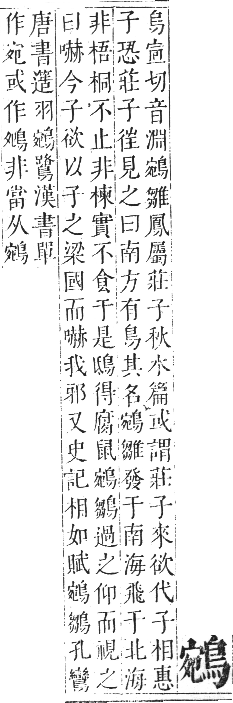 鵷
烏宣切音淵鵷雛鳳屬莊子秋水篇或謂莊子來欲代子相惠
子恐莊子徃見之曰南方有鳥其名鵷雛發于南海飛于北海
非梧桐不止非楝實不食于是鴟得腐鼠鵷鶵過之仰而視之
曰嚇今子欲以子之梁國而嚇我邪又史記相如賦鵷鶵孔鸞
唐書選羽鵷鷺漢書單
作宛或作䳃非當从鵷